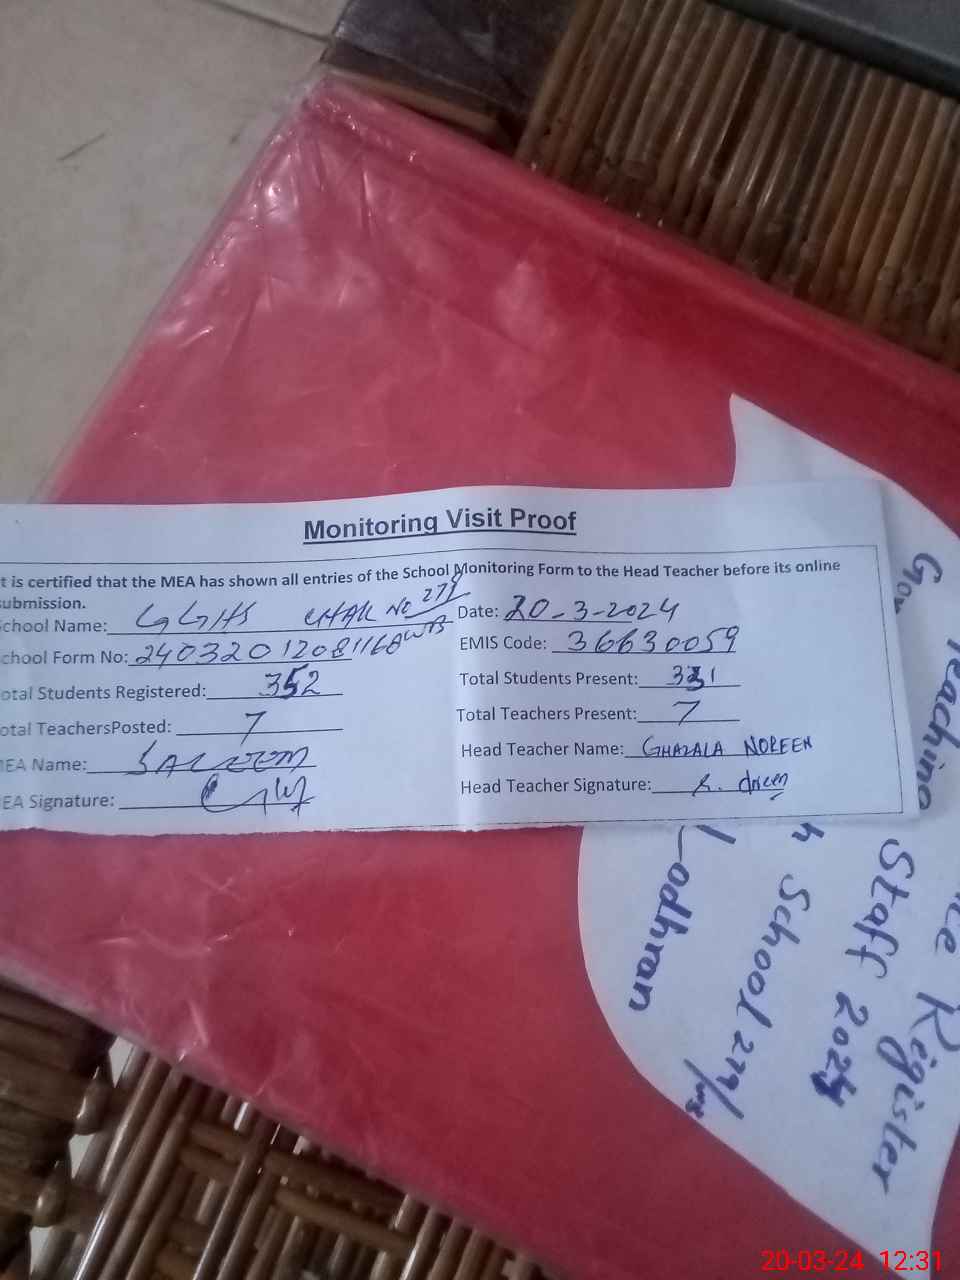 Monitoring Visit Proof
t is certified that the MEA has shown all entries of the School Monitoring Form to the Head Teacher before its online
ubmission.
chool Name: GGHS CHAK No 279/WB
Date: 20-3-2024
chool Form No: 24032012081168
EMIS Code: 36630059
otal Students Registered: 352
Total Students Present: 331
otal TeachersPosted: 7
Total Teachers Present: 7
MEA Name: SALEEM
Head Teacher Name: GHAZALA NOREEN
EA Signature:
Head Teacher Signature:
Gov
Teaching Staff 2024
Register
h School 279/WB
Lodhran
20-03-24 12:31